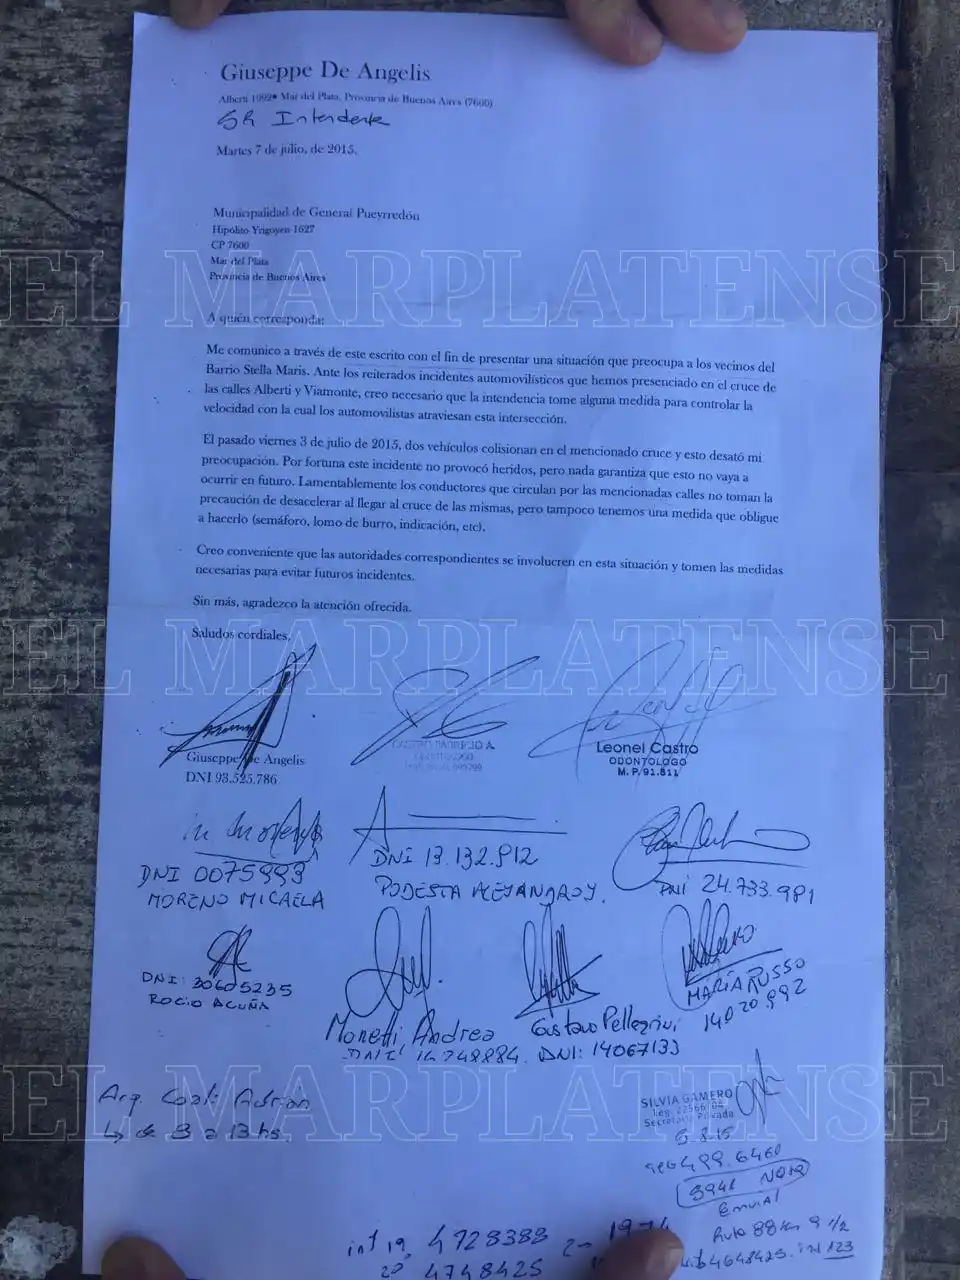 Giuseppe De Angelis
Alberti 1092• Mar del Plata, Provincia de Buenos Aires (7600)
SR Intendente
Martes 7 de julio, de 2015.
Municipalidad de General Pueyrredón
Hipólito Yrigoyen 1627
CP 7600
Mar del Plata
Provincia de Buenos Aires
EL MARPLATENSE
A quién corresponda:
Me comunico a través de este escrito con el fin de presentar una situación que preocupa a los vecinos del
Barrio Stella Maris. Ante los reiterados incidentes automovilísticos que hemos presenciado en el cruce de
las calles Alberti y Viamonte, creo necesario que la intendencia tome alguna medida para controlar la
velocidad con la cual los automovilistas atraviesan esta intersección.
El pasado viernes 3 de julio de 2015, dos vehículos colisionan en el mencionado cruce y esto desató mi
preocupación. Por fortuna este incidente no provocó heridos, pero nada garantiza que esto no vaya a
ocurrir en futuro. Lamentablemente los conductores que circulan por las mencionadas calles no toman la
precaución de desacelerar al llegar al cruce de las mismas, pero tampoco tenemos una medida que obligue
a hacerlo (semáforo, lomo de burro, indicación, etc).
Creo conveniente que las autoridades correspondientes se involucren en esta situación y tomen las medidas
necesarias para evitar futuros incidentes.
Sin más, agradezco la atención ofrecida.
Saludos cordiales,
EL MARPLATENSE
Giuseppe De Angelis
DNI 93.525.786
Leonel Castro
ODONTOLOGO
M.P. 91.811
DNI 13.132.912
DNI 24.733.981
MORENO MICAELA
PODESTA ALEJANDRO
DNI: 30605235
ROCIO ACUÑA
MARÍA RUSSO
Monetti, Andrea
DNI 14748884
Gustavo Pellegrini
DNI: 14067133
EL MARPLATENSE
Arq. Adrian
↳ de 8 a 13 hs
SILVIA GAMERO
Secretaria Privada
5.8.15
499.6460
NOTA
Ruta 88 Km 9 1/2
int 19 4728388
20 4748425
4648425 int 123